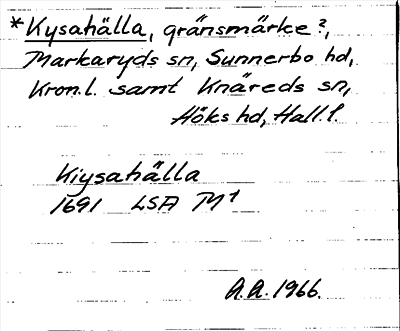 *Kysahälla, gränsmärke?,
Markaryds sn, Sunnerbo hd,
Kron.l. samt Knäreds sn,
Höks hd, Hall.l.
Kiysahälla
1691 LSA M1
A.A. 1966.